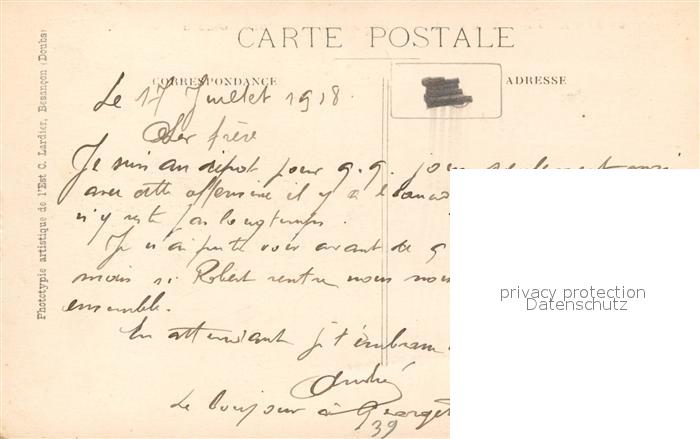 CARTE POSTALE
CORRESPONDANCE
ADRESSE
Le 17 Juillet 1918
Cher frère
Je suis au dépot pour q.q. jours seulement
avec cette offensive il y a
n'y reste pas longtemps.
Je n'ai pu te voir avant de
moins si Robert rentre nous nous
ensemble.
En attendant je t'embrasse
André
Le bonjour à
39
Phototypie artistique de l'Est C. Lardier, Besançon (Doubs)
privacy protection
Datenschutz